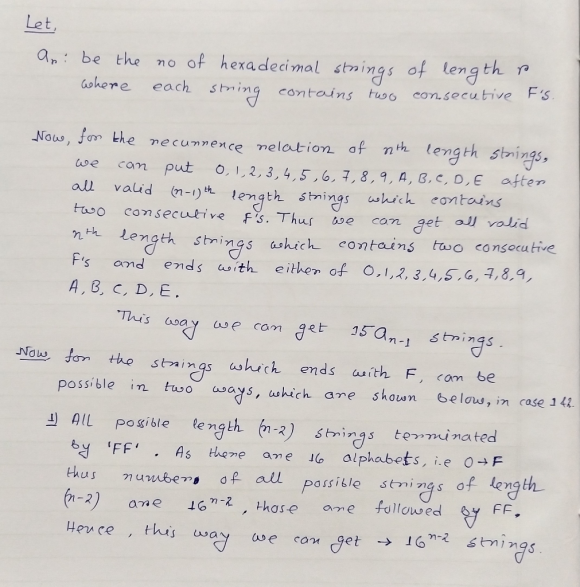 Let,
an : be the no of hexadecimal strings of length n
where each string contains two consecutive F's.
Now, for the recurrence relation of nth length strings,
we can put 0,1,2,3,4,5,6,7,8,9,A,B,C,D,E after
all valid (n-1)th length strings which contains
two consecutive F's. Thus we can get all valid
nth length strings which contains two consecutive
F's and ends with either of 0,1,2,3,4,5,6,7,8,9,
A, B, C, D, E.
This way we can get 15an-1 strings.
Now, for the strings which ends with F, can be
possible in two ways, which are shown below, in case 1&2.
1) All possible length (n-2) strings terminated
by 'FF'. As there are 16 alphabets, i.e 0→F
thus number of all possible strings of length
(n-2) are 16^n-2, those are followed by FF.
Hence, this way we can get → 16^n-2 strings.